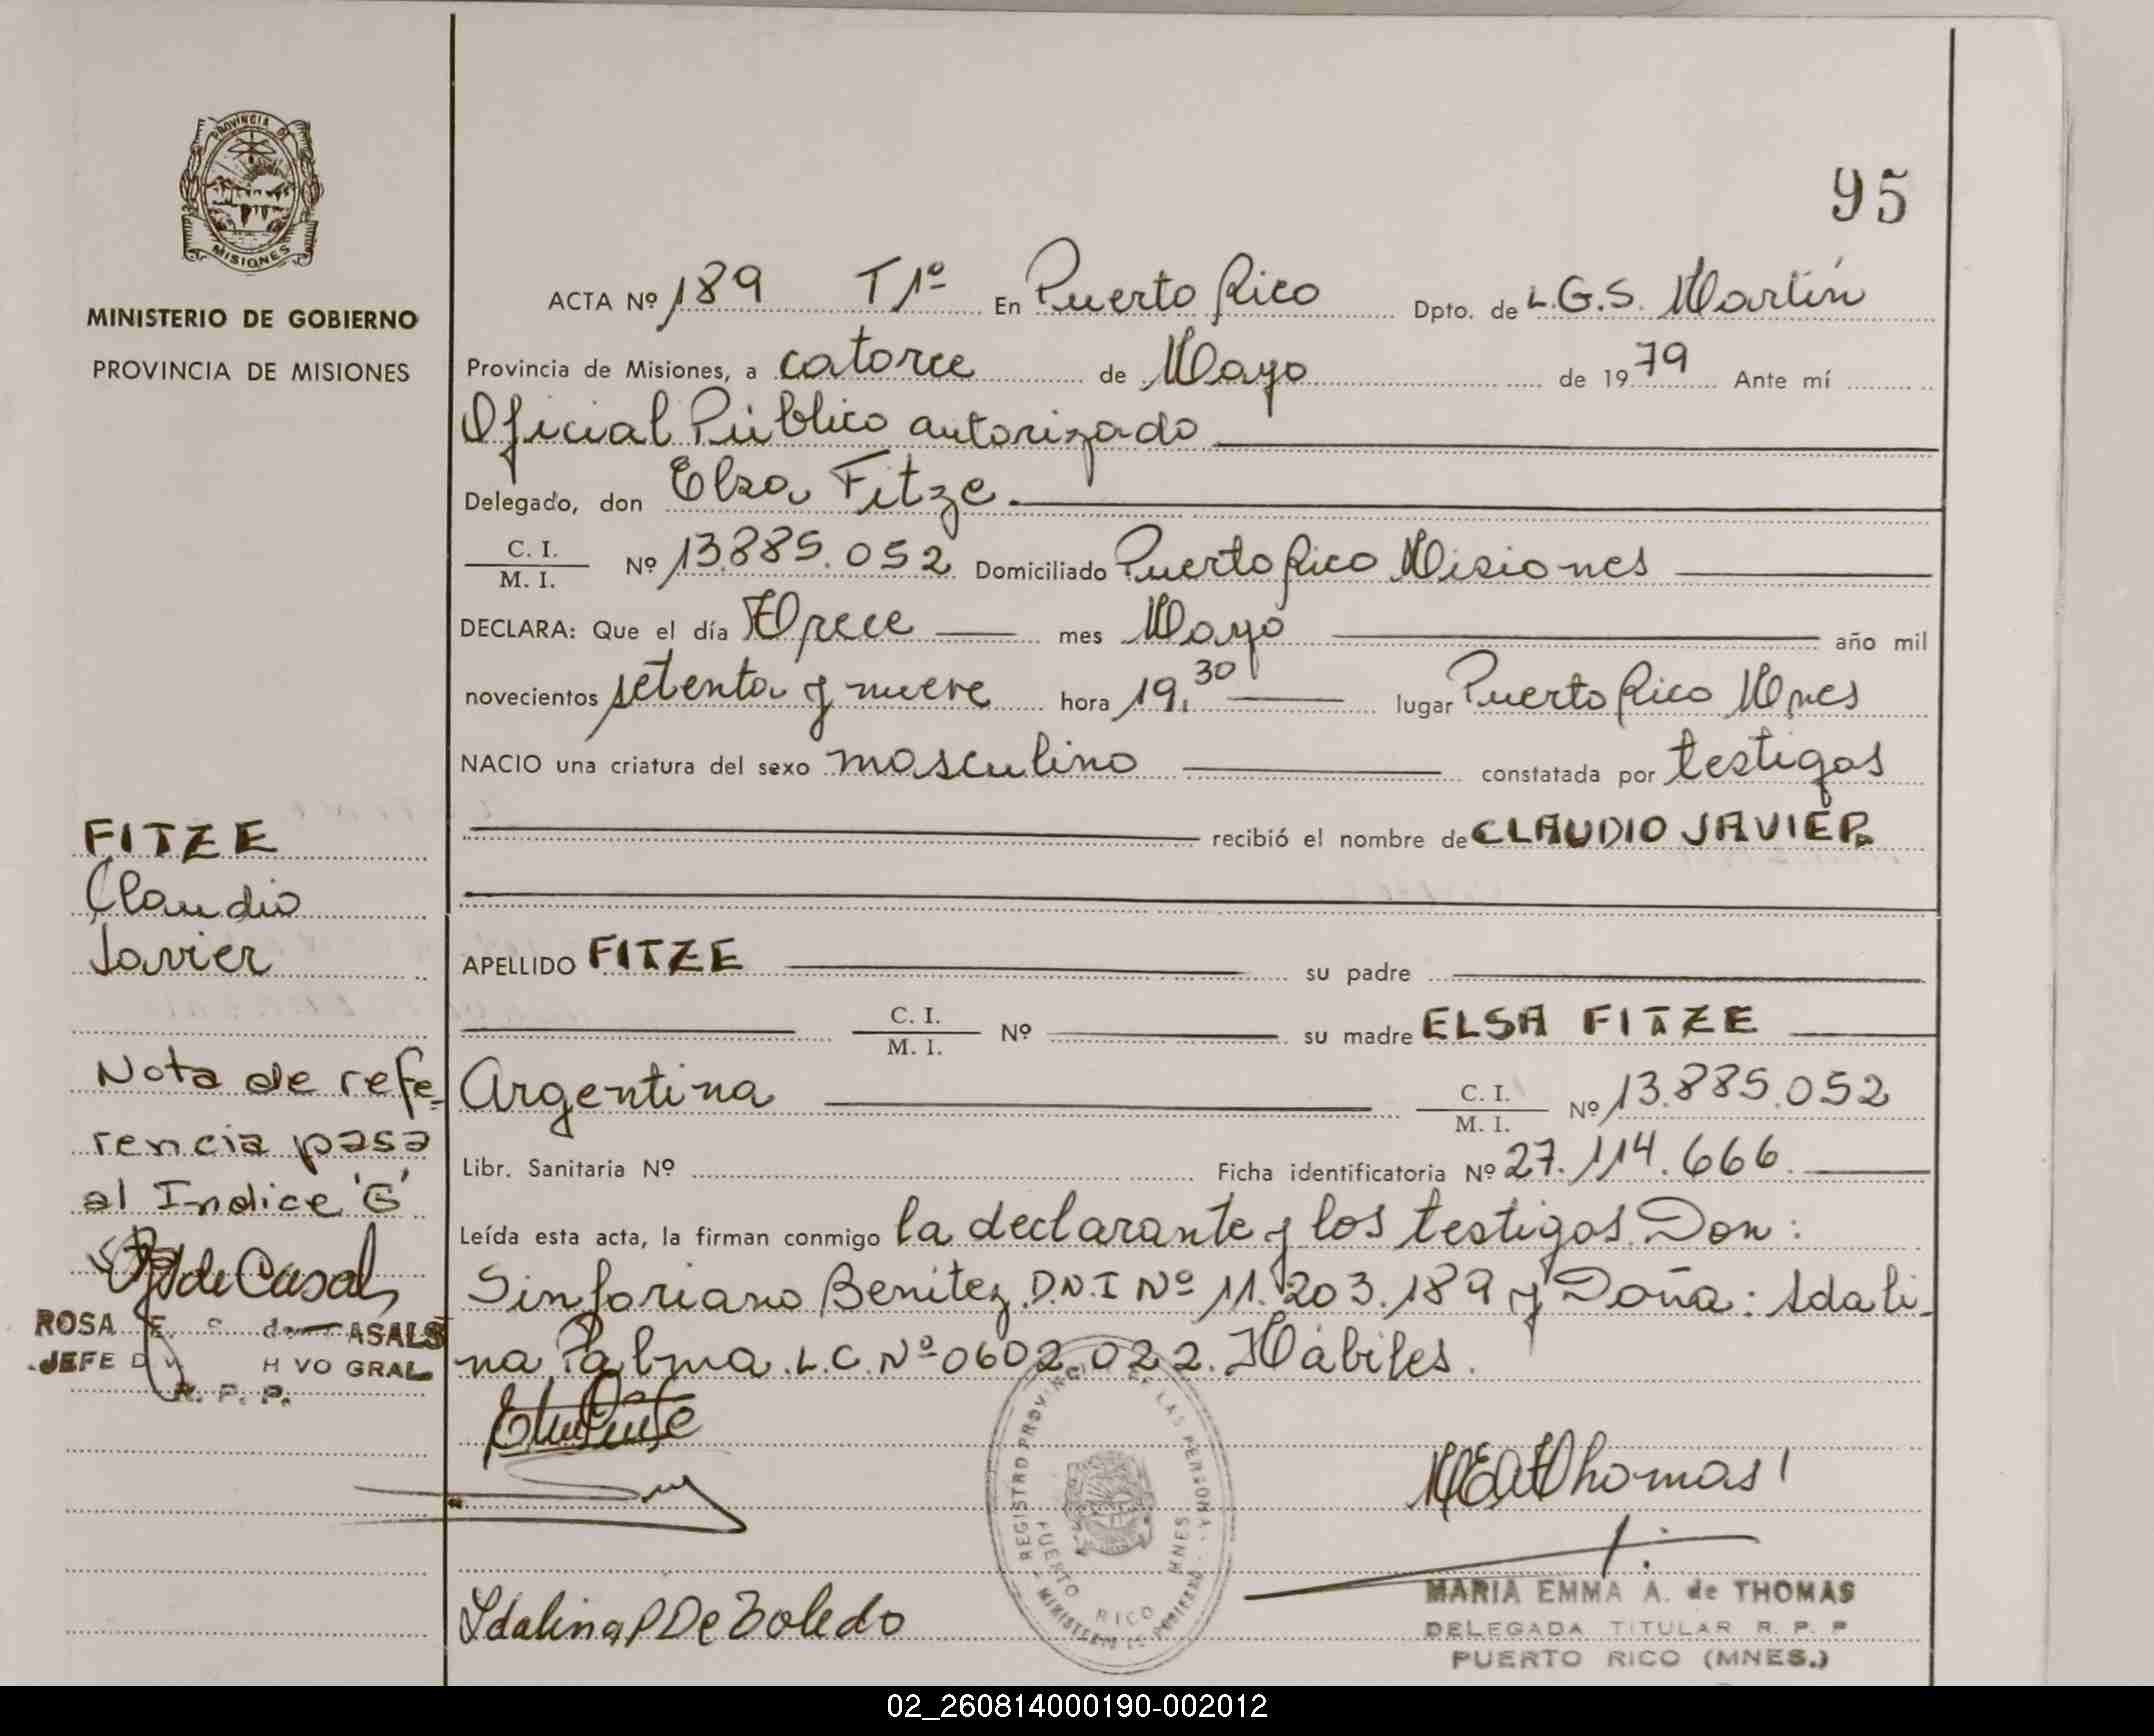 PROVINCIA DE
MISIONES
MINISTERIO DE GOBIERNO
PROVINCIA DE MISIONES
95
ACTA Nº 189 T1º En Puerto Rico Dpto. de L.G.S. Martín
Provincia de Misiones, a catorce de Mayo de 1979 Ante mí
Oficial Público autorizado
Delegado, don Elsa Fitze.
C. I.
M. I. Nº 13.885.052 Domiciliado Puerto Rico Misiones
DECLARA: Que el día Trece mes Mayo año mil
novecientos setenta y nueve hora 19,30 lugar Puerto Rico Mnes
NACIO una criatura del sexo masculino constatada por testigos
recibió el nombre de CLAUDIO JAVIER
FITZE
Claudio
Javier
APELLIDO FITZE su padre
C. I.
M. I. Nº su madre ELSA FITZE
Argentina C. I.
M. I. Nº 13.885.052
Libr. Sanitaria Nº Ficha identificatoria Nº 27.114.666.
Leída esta acta, la firman conmigo la declarante y los testigos Don:
Sinforiano Benitez D.N.I Nº 11.203.189 y Doña: Idali-
na Palma. L.C. Nº 0602.022. Hábiles.
Nota de refe-
rencia pasa
al Indice 'G'
de Casals
ROSA E. S. de CASALS
JEFE GRAL.
R. P. P.
Idalina P De Toledo
REGISTRO PROVINCIAL DE LAS PERSONAS
PUERTO RICO MNES
MINISTERIO DE GOBIERNO
MEAThomas
MARIA EMMA A. de THOMAS
DELEGADA TITULAR R. P. P
PUERTO RICO (MNES.)
02_260814000190-002012